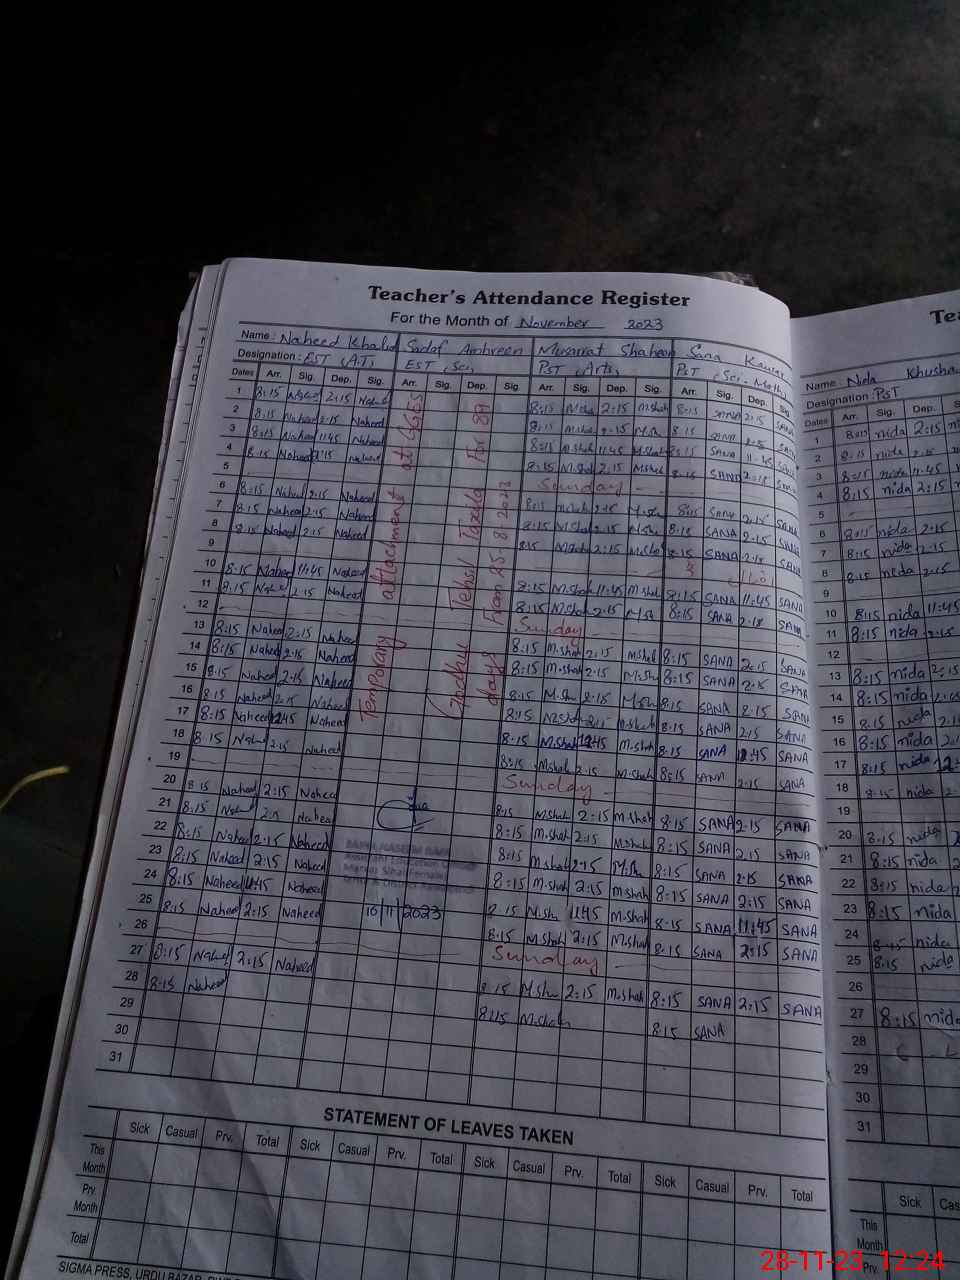 Teacher's Attendance Register
For the Month of November 2023
Name: Naheed Khalid Sadaf Ambreen Musarrat Shaheen Sana Kawal
Designation: EST (A.T) EST (Sc) PST (Arts) PST (Sci-Math)
Dates Arr. Sig. Dep. Sig. Arr. Sig. Dep. Sig. Arr. Sig. Dep. Sig. Arr. Sig. Dep. Sig.
1 8:15 Naheed 2:15 Naheed 8:15 M.Sha 2:15 M.Shah 8:15 SANA 2:15 SANA
2 8:15 Naheed 2:15 Naheed 8:15 M.Sha 2:15 M.Sh 8:15 SANA 2:15 SANA
3 8:15 Naheed 11:45 Naheed 8:15 M.Shah 11:45 M.Shah 8:15 SANA 11:45 SANA
4 8:15 Naheed 2:15 Naheed 8:15 M.Shah 2:15 M.Shah 8:15 SANA 2:15 SANA
5 Sunday
6 8:15 Naheed 2:15 Naheed 8:15 M.Shah 2:15 M.Sh 8:15 SANA 2:15 SANA
7 8:15 Naheed 2:15 Naheed 8:15 M.Shah 2:15 M.Sh 8:15 SANA 2:15 SANA
8 8:15 Naheed 2:15 Naheed 8:15 M.Shah 2:15 M.Sha 8:15 SANA 2:15 SANA
9
10 8:15 Naheed 11:45 Naheed 8:15 M.Shah 11:45 M.Shah 8:15 SANA 11:45 SANA
11 8:15 Naheed 2:15 Naheed 8:15 M.Shah 2:15 M.Sh 8:15 SANA 2:15 SANA
12 Sunday
13 8:15 Naheed 2:15 Naheed 8:15 M.Shah 2:15 M.Shah 8:15 SANA 2:15 SANA
14 8:15 Naheed 2:15 Naheed 8:15 M.Shah 2:15 M.Sha 8:15 SANA 2:15 SANA
15 8:15 Naheed 2:15 Naheed 8:15 M.Sha 2:15 M.Sh 8:15 SANA 2:15 SANA
16 8:15 Naheed 2:15 Naheed 8:15 M.Shah 2:15 M.Shah 8:15 SANA 2:15 SANA
17 8:15 Naheed 12:45 Naheed 8:15 M.Shah 12:45 M.Shah 8:15 SANA 12:45 SANA
18 8:15 Naheed 2:15 Naheed 8:15 M.Shah 2:15 M.Shah 8:15 SANA 2:15 SANA
19 Sunday
20 8:15 Naheed 2:15 Naheed 8:15 M.Shah 2:15 M.Shah 8:15 SANA 2:15 SANA
21 8:15 Naheed 2:15 Naheed 8:15 M.Shah 2:15 M.Shah 8:15 SANA 2:15 SANA
22 8:15 Naheed 2:15 Naheed 8:15 M.Shah 2:15 M.Sh 8:15 SANA 2:15 SANA
23 8:15 Naheed 2:15 Naheed 8:15 M.Shah 2:15 M.Shah 8:15 SANA 2:15 SANA
24 8:15 Naheed 11:45 Naheed 8:15 M.Sh 11:45 M.Shah 8:15 SANA 11:45 SANA
25 8:15 Naheed 2:15 Naheed 8:15 M.Shah 2:15 M.Shah 8:15 SANA 2:15 SANA
26 Sunday
27 8:15 Naheed 2:15 Naheed 8:15 M.Sha 2:15 M.Shah 8:15 SANA 2:15 SANA
28 8:15 Naheed 8:15 M.Shah 8:15 SANA
29
30
31
Temporary attachment at GGES
Tehsil Taxila For 89
days From 25-8-2023
Assistant Education Officer
16/11/2023
STATEMENT OF LEAVES TAKEN
Sick Casual Prv. Total Sick Casual Prv. Total Sick Casual Prv. Total Sick Casual Prv. Total
This Month
Prv. Month
Total
SIGMA PRESS, URDU BAZAR,
Name: Nida Khusha
Designation: PST
Dates Arr. Sig. Dep.
1 8:15 nida 2:15
2 8:15 nida 2:15
3 8:15 nida 11:45
4 8:15 nida 2:15
5
6 8:15 nida 2:15
7 8:15 nida 2:15
8 8:15 nida 2:15
9
10 8:15 nida 11:45
11 8:15 nida 2:15
12
13 8:15 nida 2:15
14 8:15 nida 2:15
15 8:15 nida 2:15
16 8:15 nida
17 8:15 nida
18 8:15 nida
19
20 8:15 nida
21 8:15 nida
22 8:15 nida
23 8:15 nida
24 nida
25 8:15 nida
26
27 8:15 nida
28
29
30
31
Sick
This Month
Prv.
28-11-23 12:24